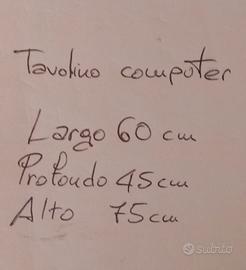 Tavolino computer
Largo 60 cm
Profondo 45 cm
Alto 75 cm
subito